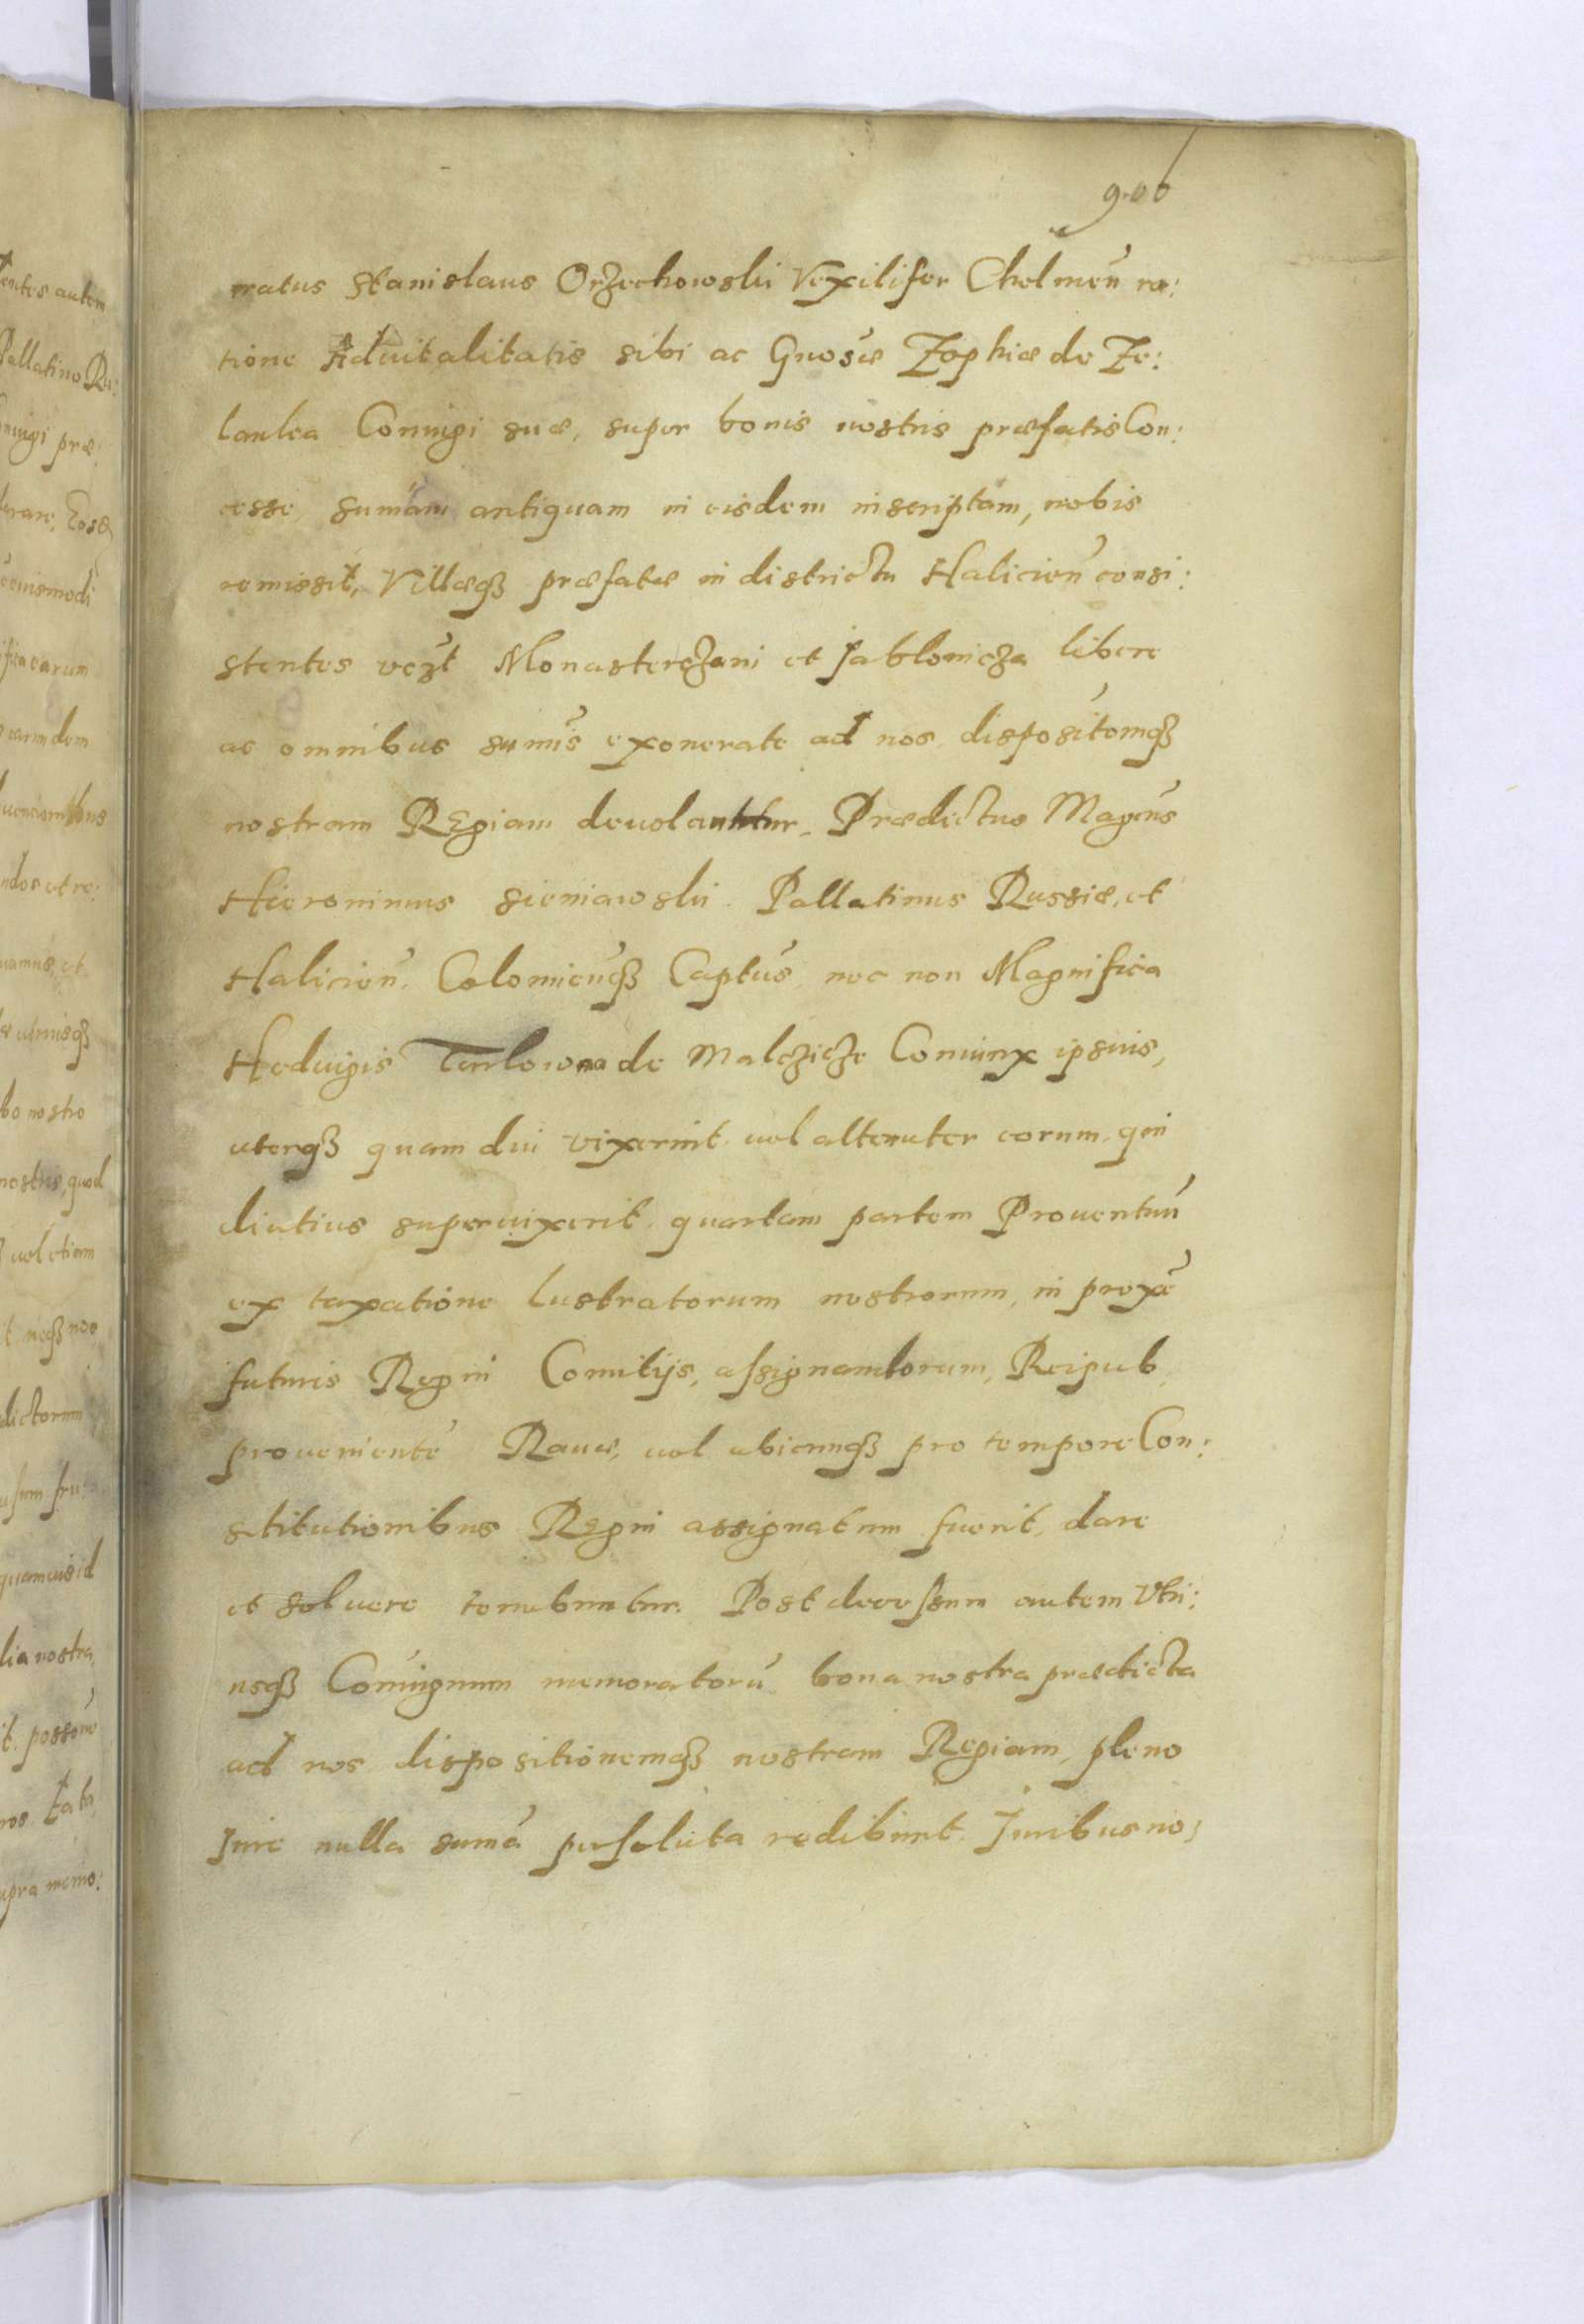 906
ratus Stanislaus Orzechowski Vexilifer Chelmeñ ra:
tione Aduitalitatis sibi ac Gnosæ Zophiæ de Ze:
lanka Coniugi suæ, super bonis nostris præfatis Con:
cesse, sumam antiquam in eisdem inscriptam, nobis
remissit, Villæqȝ præfatæ in districtu Halicieñ consi:
stentes vczt Monasterczani et Jablonicza libere
ac omnibus sumis exonerate ad nos dispositõemqȝ
nostram Regiam deuolantur. Prædictus Magcus
Hieronimus Sieniawski Pallatinus Russiæ, et
Halicieñ Colomieñqȝ Captus nec non Magnifica
Heduigis de Malczicze Coniunx ipsius,
uterqȝ quam diu vixerint uel alteruter eorum qui
diutius superuixerit quartam partem Prouentuũ
ex taxatione Lustratorum nostrorum, in proxẽ
futuris Regni Comitijs, assignandorum, Reipub.
prouenientẽ Rauæ, uel ubicunqȝ pro tempore Con:
stitutionibus Regni assignatum fuerit, dare
et soluere tenebuntur. Post decessum autem Vtri:
usqȝ Coniugum memoratorũ bona nostra prædicta
ad nos dispositionemqȝ nostram Regiam, pleno
Jure nulla sumã persoluta redibunt. Juribus no: